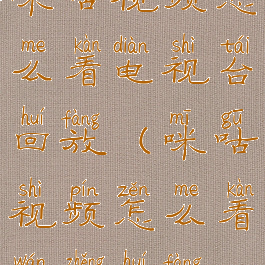 视频怎
me kàn diàn shì tái
么看电视台
huí fàng mī gū
回放（咪咕
shì pín zěn me kàn
视频怎么看
wán zhěng huí fàng